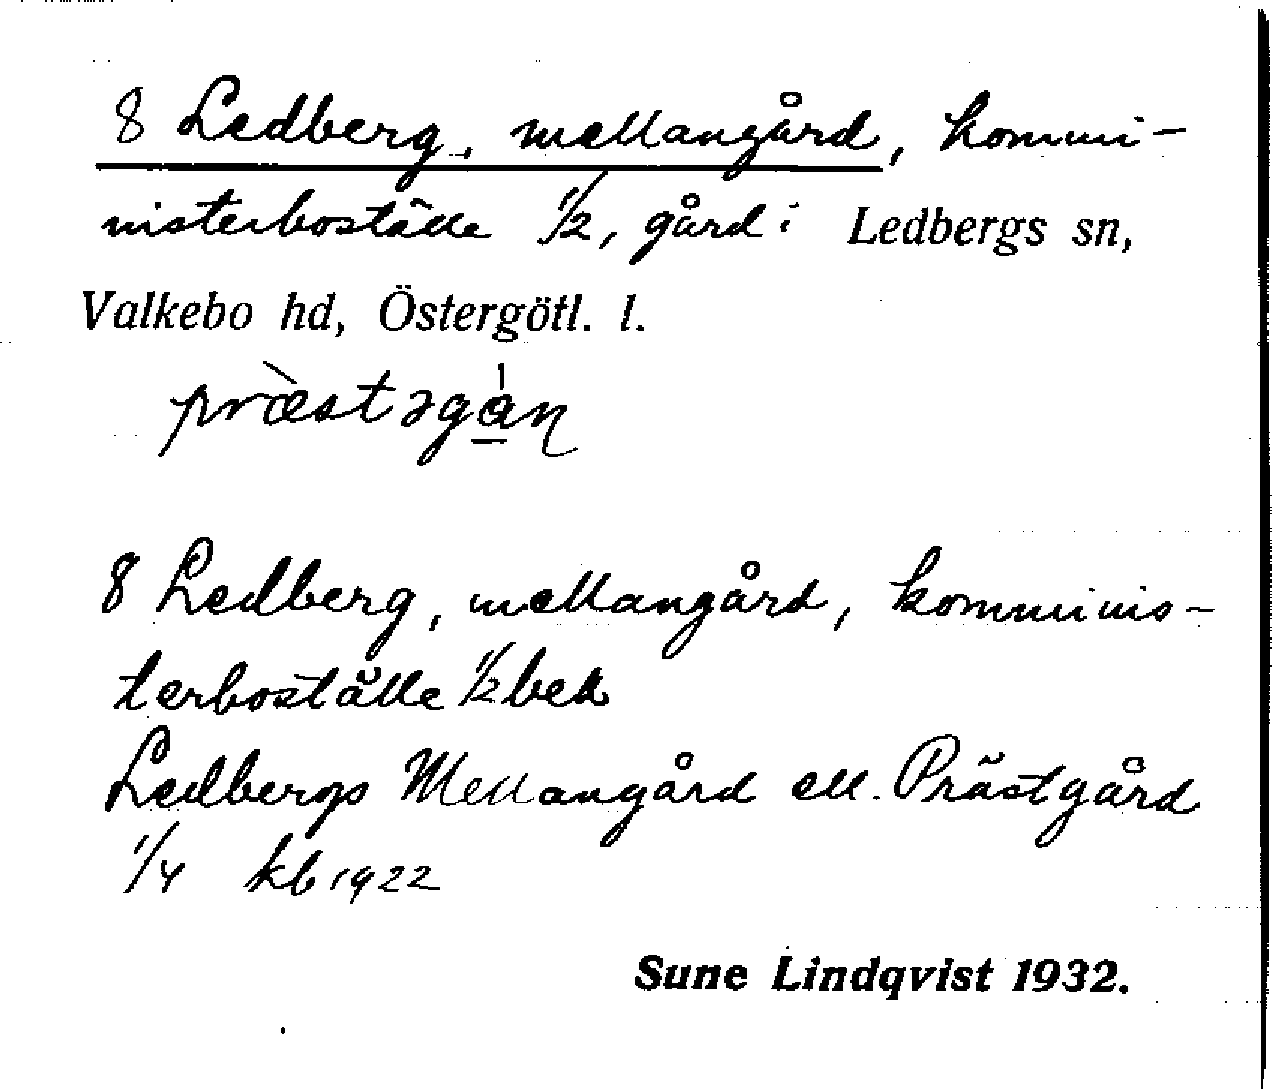 8 Ledberg, mellangård, kommi-
nisterboställe 1/2, gård i Ledbergs sn,
Valkebo hd, Östergötl. l.
prὰstəgån
8 Ledberg, mellangård, komminis-
terboställe 1/2 bek
Ledbergs Mellangård ell. Prästgård
1/4 kb 1922
Sune Lindqvist 1932.